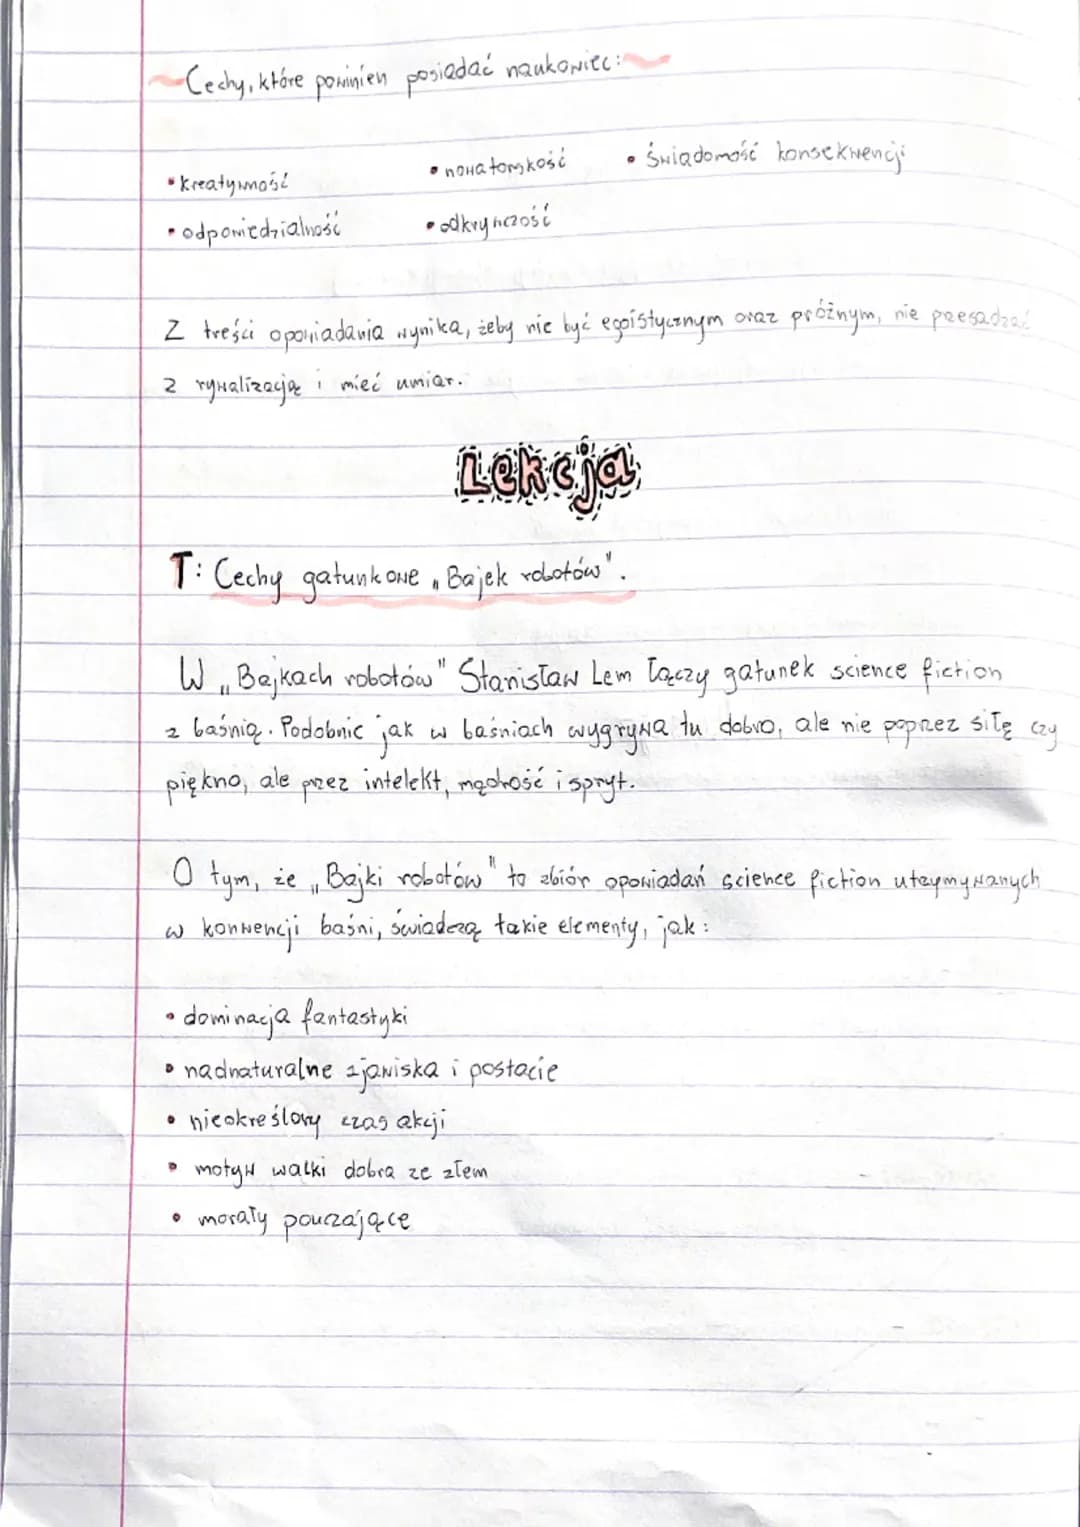 Cechy, które powinien posiadać naukowiec:
• kreatywność • nowatorskość • świadomość konsekwencji
• odpowiedzialność • odkrywczość
Z treści opowiadania wynika, żeby nie być egoistycznym oraz próżnym, nie przesadzać
z rywalizacją i mieć umiar.
Lekcja
T: Cechy gatunkowe „Bajek robotów".
W „Bajkach robotów" Stanisław Lem łączy gatunek science fiction
z baśnią. Podobnie jak w baśniach wygrywa tu dobro, ale nie poprzez siłę czy
piękno, ale przez intelekt, mądrość i spryt.
O tym, że „Bajki robotów" to zbiór opowiadań science fiction utrzymywanych
w konwencji baśni, świadczą takie elementy, jak:
• dominacja fantastyki
• nadnaturalne zjawiska i postacie
• nieokreślony czas akcji
• motyw walki dobra ze złem
• morały pouczające